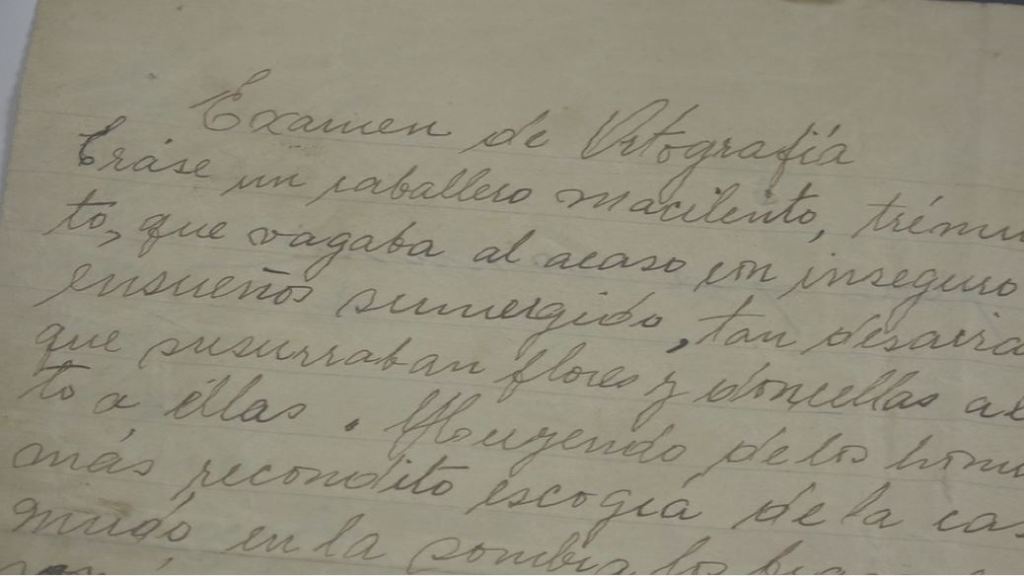 Examen de Ortografiá
Eráse un caballero macilento, trému
to, que vagaba al acaso con inseguro
ensueños sumergido, tan desaira
que susurraban flores y doncellas al
to a éllas. Huyendo de los hom
más recondito escogiá de la cas
mudo en la sombra los